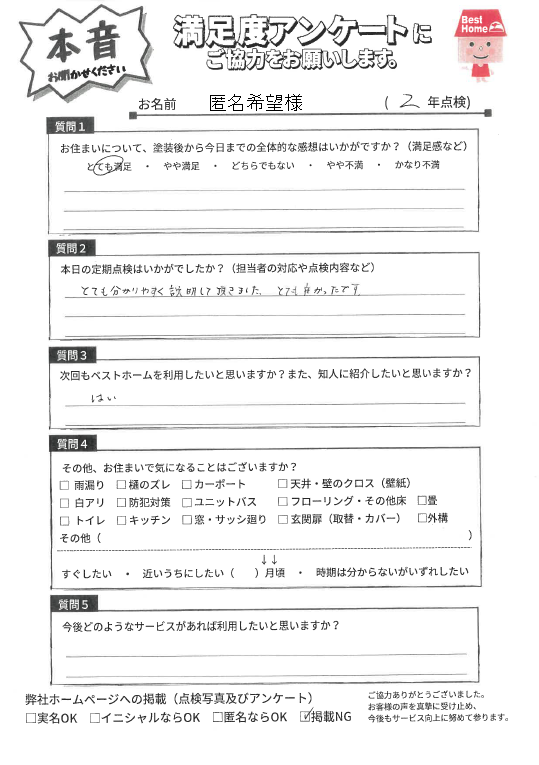 本音
お聞かせください
満足度アンケートに
ご協力をお願いします。
Best Home
お名前 匿名希望様 ( 2 年点検)
質問1
お住まいについて、塗装後から今日までの全体的な感想はいかがですか？（満足感など）
とても満足 ・ やや満足 ・ どちらでもない ・ やや不満 ・ かなり不満
質問2
本日の定期点検はいかがでしたか？（担当者の対応や点検内容など）
とても分かりやすく説明して頂きました、とても良かったです。
質問3
次回もベストホームを利用したいと思いますか？また、知人に紹介したいと思いますか？
はい
質問4
その他、お住まいで気になることはございますか？
□ 雨漏り □ 樋のズレ □ カーポート □ 天井・壁のクロス（壁紙）
□ 白アリ □ 防犯対策 □ ユニットバス □ フローリング・その他床 □畳
□ トイレ □ キッチン □ 窓・サッシ廻り □ 玄関扉（取替・カバー） □外構
その他（ ）
↓↓
すぐしたい ・ 近いうちにしたい（ ）月頃 ・ 時期は分からないがいずれしたい
質問5
今後どのようなサービスがあれば利用したいと思いますか？
弊社ホームページへの掲載（点検写真及びアンケート）
□実名OK □イニシャルならOK □匿名ならOK ☑掲載NG
ご協力ありがとうございました。
お客様の声を真摯に受け止め、
今後もサービス向上に努めて参ります。